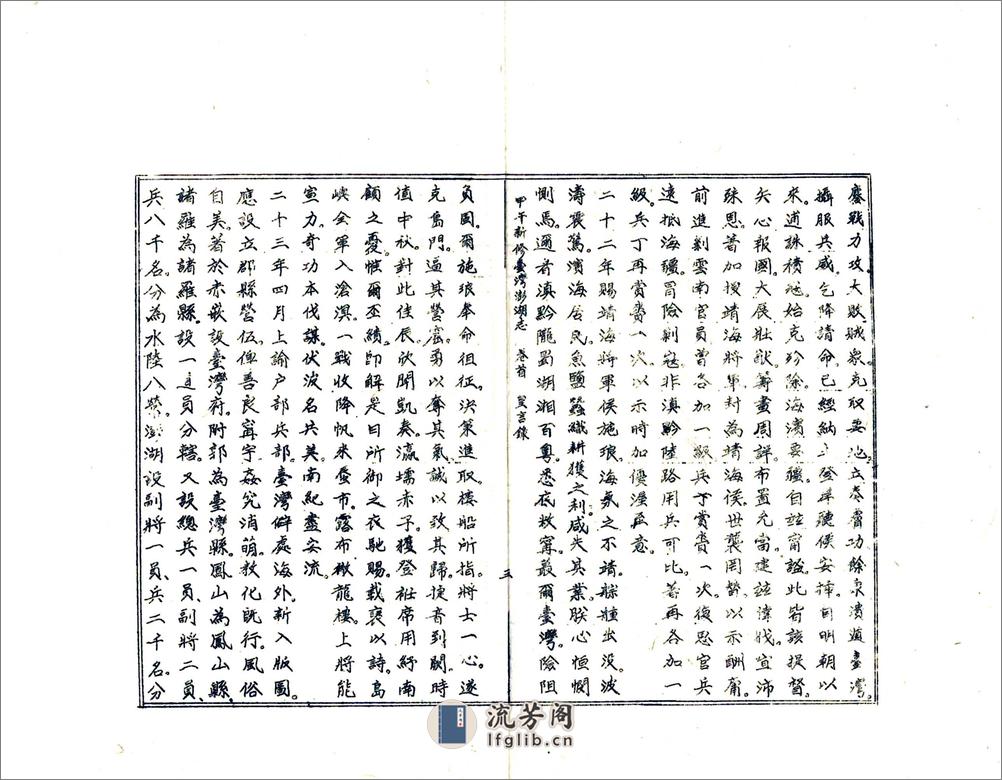 鏖戰力攻。大敗賊眾。克取要地。立奏膚功。餘眾潰遁臺灣。
懾服兵威。乞降請命。已經納土登岸。聽候安插。自明朝以
來。逋誅積寇。始克殄除。海濱要疆。自茲寧謐。此皆該提督。
矢心報國。大展壯猷。籌畫周詳。布置允當。建茲偉伐。宜沛
殊恩。著加授靖海將軍。封為靖海侯。世襲罔替。以示酬庸。
前進剿雲南官員。曾各加一級。兵丁賞賚一次。後思官兵
遠抵海疆。冒險剿寇。非滇黔陸路用兵可比。著再各加一
級。兵丁再賞賚一次。以示時加優渥至意。
二十二年。賜靖海將軍侯施琅。海氛之不靖。艅艎出沒。波
濤震驚。濱海居民。魚鹽蠶織耕獲之利。咸失其業。朕心恒憫
惻焉。邇者滇黔隴蜀湖湘百粵。悉底救寧。最爾臺灣。險阻
甲午新修臺灣澎湖志 卷首 聖言錄
三
負固。爾施琅奉命徂征。決策進取。樓船所指。將士一心。遂
克島門。逼其營窟。勇以奪其氣。誠以致其歸。捷音到闕。時
值中秋。對此佳辰。欣聞凱奏。瀛壖赤子。獲登袵席。用紓南
顧之憂。惟爾丕績。即解是日所御之衣馳賜。載褒以詩。島
峽全軍入。滄溟一戰收。降帆來蜃市。露布徹龍樓。上將能
宣力。奇功本伐謀。伏波名共美。南紀盡安流。
二十三年四月。上諭戶部兵部。臺灣僻處海外。新入版圖。
應設立郡縣營伍。俾善良甯宇。姦宄消萌。教化既行。風俗
自美。著於赤嵌設臺灣府。附郭為臺灣縣。鳳山為鳳山縣。
諸羅為諸羅縣。設一道員分轄。又設總兵一員、副將二員、
兵八千名。分為水陸八營。澎湖設副將一員、兵二千名。分
流芳阁
lfglib.cn